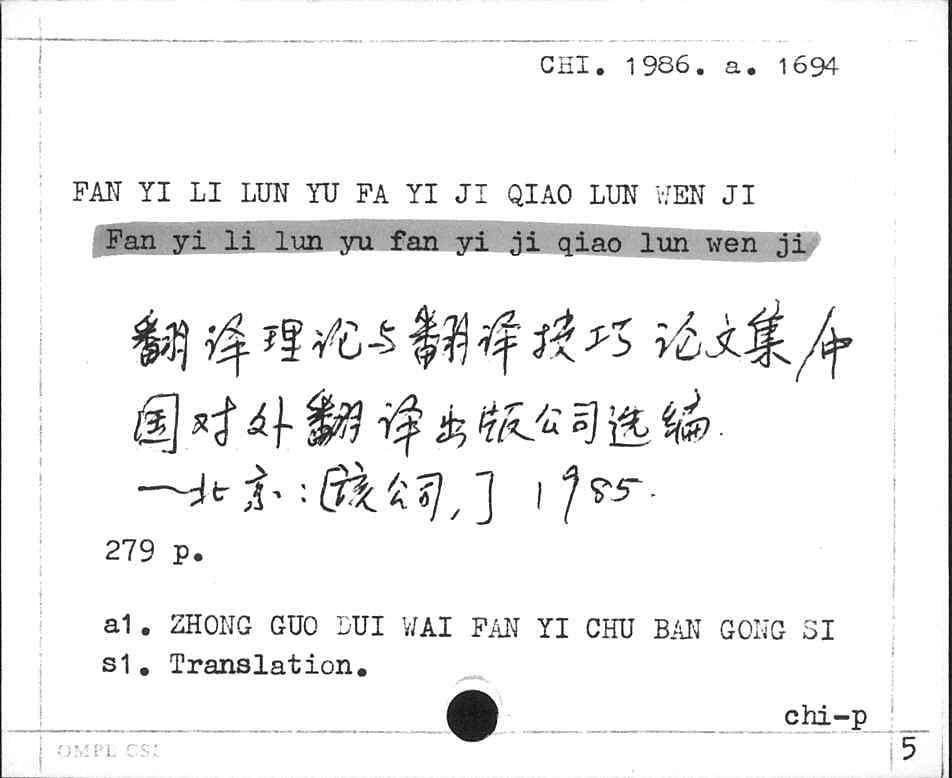 CHI. 1986. a. 1694
FAN YI LI LUN YU FA YI JI QIAO LUN WEN JI
Fan yi li lun yu fan yi ji qiao lun wen ji
翻译理论与翻译技巧论文集/中
国对外翻译出版公司选编.
—北京:[该公司,] 1985.
279 p.
a1. ZHONG GUO DUI WAI FAN YI CHU BAN GONG SI
s1. Translation.
chi-p
OMPL CSI
5